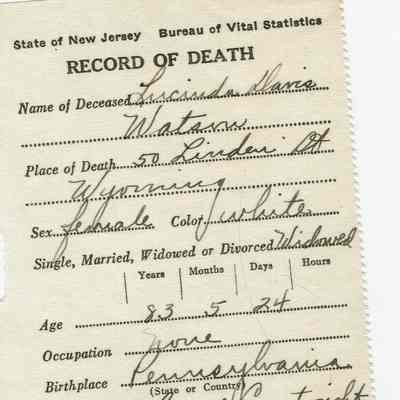 State of New Jersey Bureau of Vital Statistics
RECORD OF DEATH
Name of Deceased Lucinda Davis
Watson
Place of Death 50 Linden St
Wyoming
Sex female Color white
Single, Married, Widowed or Divorced Widowed
Years Months Days Hours
Age 83 5 24
Occupation none
Birthplace Pennsylvania
(State or Country)